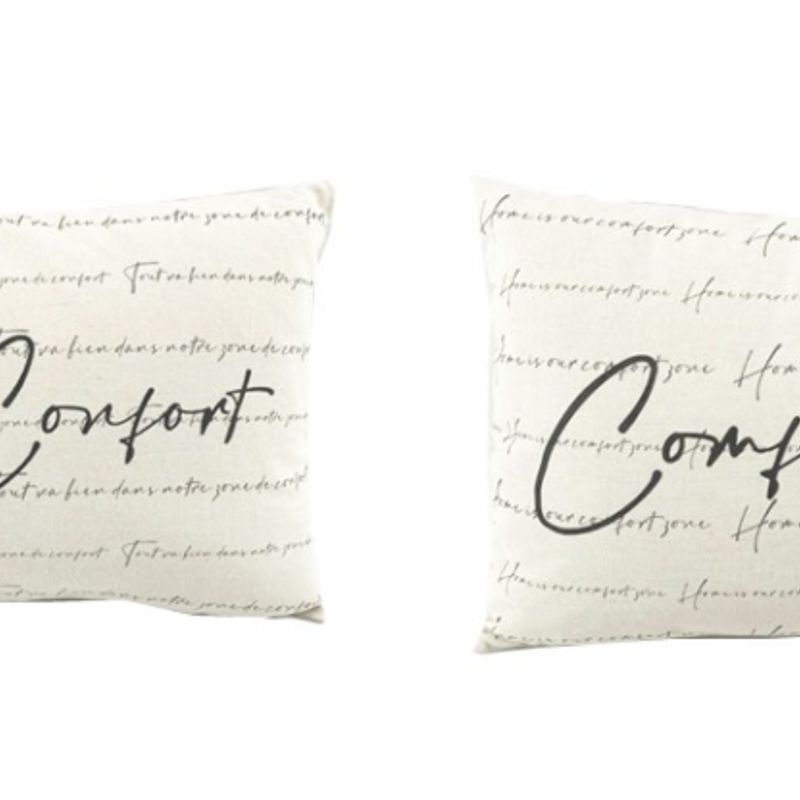 va bien dans notre zone de confort
zone de confort Tout va bien dans notre zone
va bien dans notre zone de confort
Confort
va bien dans notre zone de confort
zone de confort Tout va bien dans notre
va bien dans notre zone de confort
Home is our comfort zone Hom
Home is our comfort zone Home is our co
Home is our comfort zone Hom
Comf
Home is our comfort zone
Home is our comfort zone Hom
Home is our comfort zone Home is our co